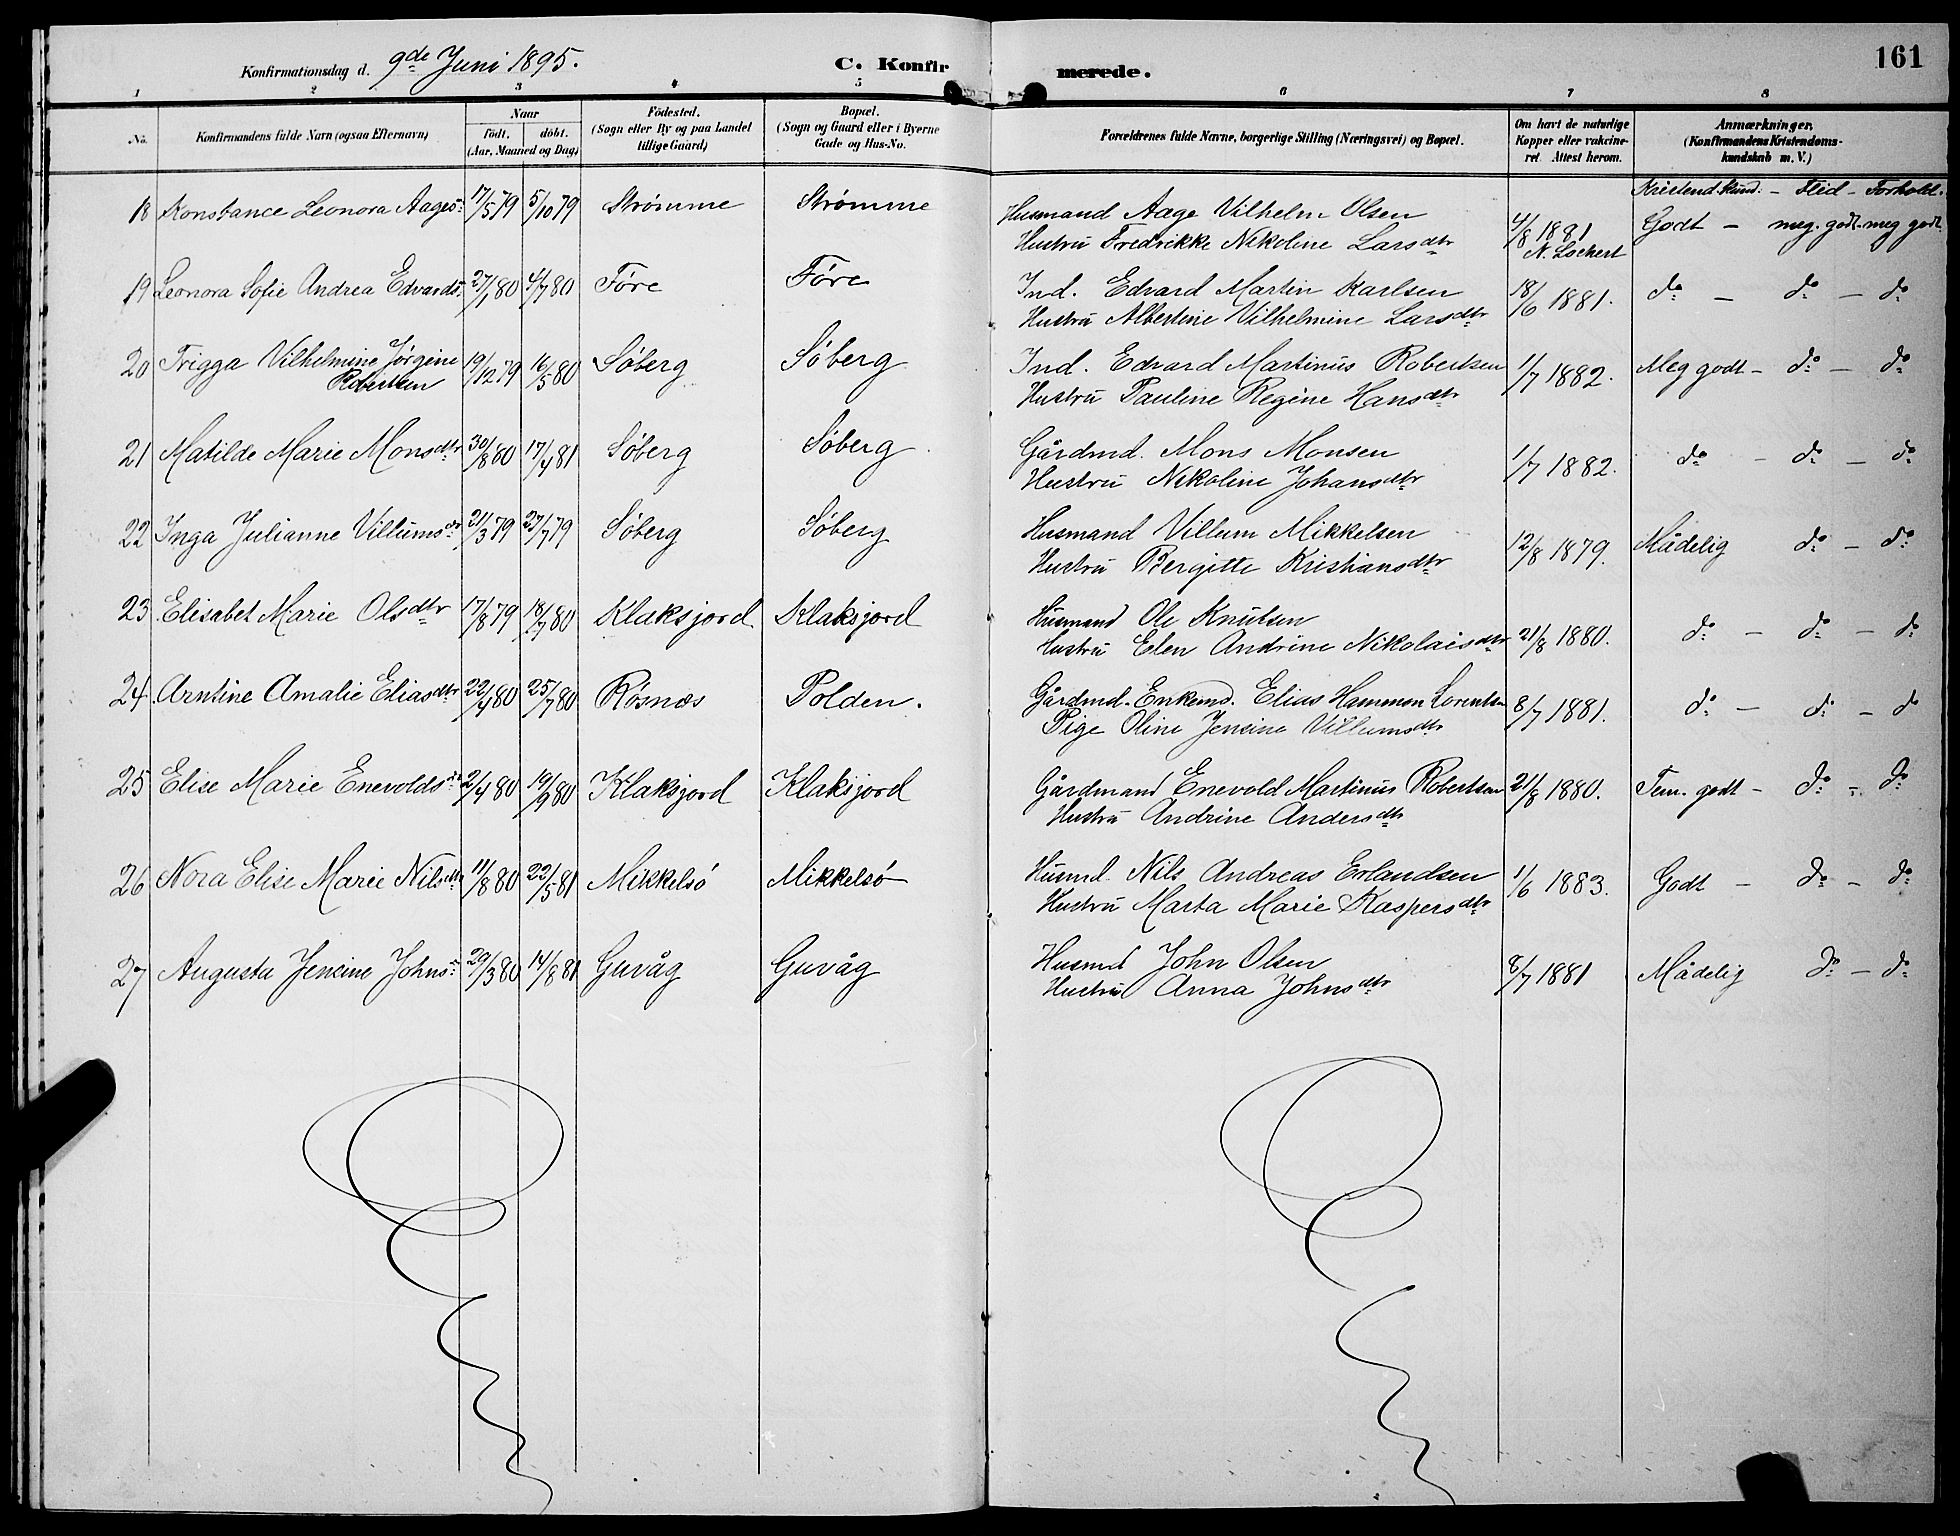 161
Konfirmationsdag d. 9de Juni 1895. C. Konfir merede.
1 2 3 4 5 6 7 8
No. Konfirmandens fulde Navn (ogsaa Efternavn) Naar født. døbt. (Aar, Maaned og Dag) Fødested. (Sogn eller By og paa Landet tillige Gaard) Bopæl. (Sogn og Gaard eller i Byerne Gade og Hus-No. Forældrenes fulde Navne, borgerlige Stilling (Næringsvei) og Bopæl. Om havt de naturlige Kopper eller vakcineret. Attest herom. Anmærkninger. (Konfirmandens Kristendomskundskab m. V.)
Kristend.kund. - Flid - Forhold.
18 Konstance Leonora Aages: 17/5 79 5/10 79 Strømme Strømme Husmand Aage Vilhelm Olsen 4/8 1881 Godt - meg. godt. meg godt
Hustru Fredrikke Nikoline Larsdtr N. Lochert
19 Leonora Sofie Andrea Edvards: 27/1 80 4/7 80 Føre Føre Ind. Edvard Martin Karlsen 18/6 1881. do - do - do
Hustru Albertine Vilhelmine Larsdtr
20 Frigga Vilhelmine Jørgine 19/12 79 16/5 80 Søberg Søberg Ind. Edvard Martinus Robertsen 1/7 1882. Meg godt - do - do
Robertsen Hustru Pauline Regine Hansdtr
21 Matilde Marie Monsdtr 30/8 80 17/4 81 Søberg Søberg. Gårdmd. Mons Monsen 1/7 1882. do - do - do
Hustru Nikoline Johansdtr
22 Inga Julianne Villumsdr 21/3 79 27/7 79 Søberg Søberg Husmand Villum Mikkelsen 12/8 1879. Mådelig do - do
Hustru Bergitte Kristiansdtr
23 Elisabet Marie Olsdtr 17/8 79 18/7 80 Klaksjord Klaksjord Husmand Ole Knutsen 21/8 1880. do - do - do
Hustru Elen Andrine Nikolaisdtr
24. Arntine Amalie Eliasdtr 22/4 80 25/7 80 Røsnæs Polden. Gårdmd. Enkemd. Elias Hammon Lorentsen 8/7 1881. do - do - do
Pige Oline Jensine Villumsdtr
25 Elise Marie Enevolds: 2/4 80 19/9 80 Klaksjord Klaksjord Gårdmand Enevold Martinus Robertsen 21/8 1880. Tem. godt - do - do
Hustru Andrine Andersdtr
26 Nora Elise Marie Nilsdtr 11/8 80 22/5 81 Mikkelsø Mikkelsø Husmd. Nils Andreas Erlandsen 1/6 1883. Godt - do - do
Hustru Marta Marie Kaspersdtr
27 Augusta Jensine Johns: 29/3 80 14/8 81 Guvåg Guvåg Husmd John Olsen 8/7 1881 Mådelig do - do
Hustru Anna Johnsdtr